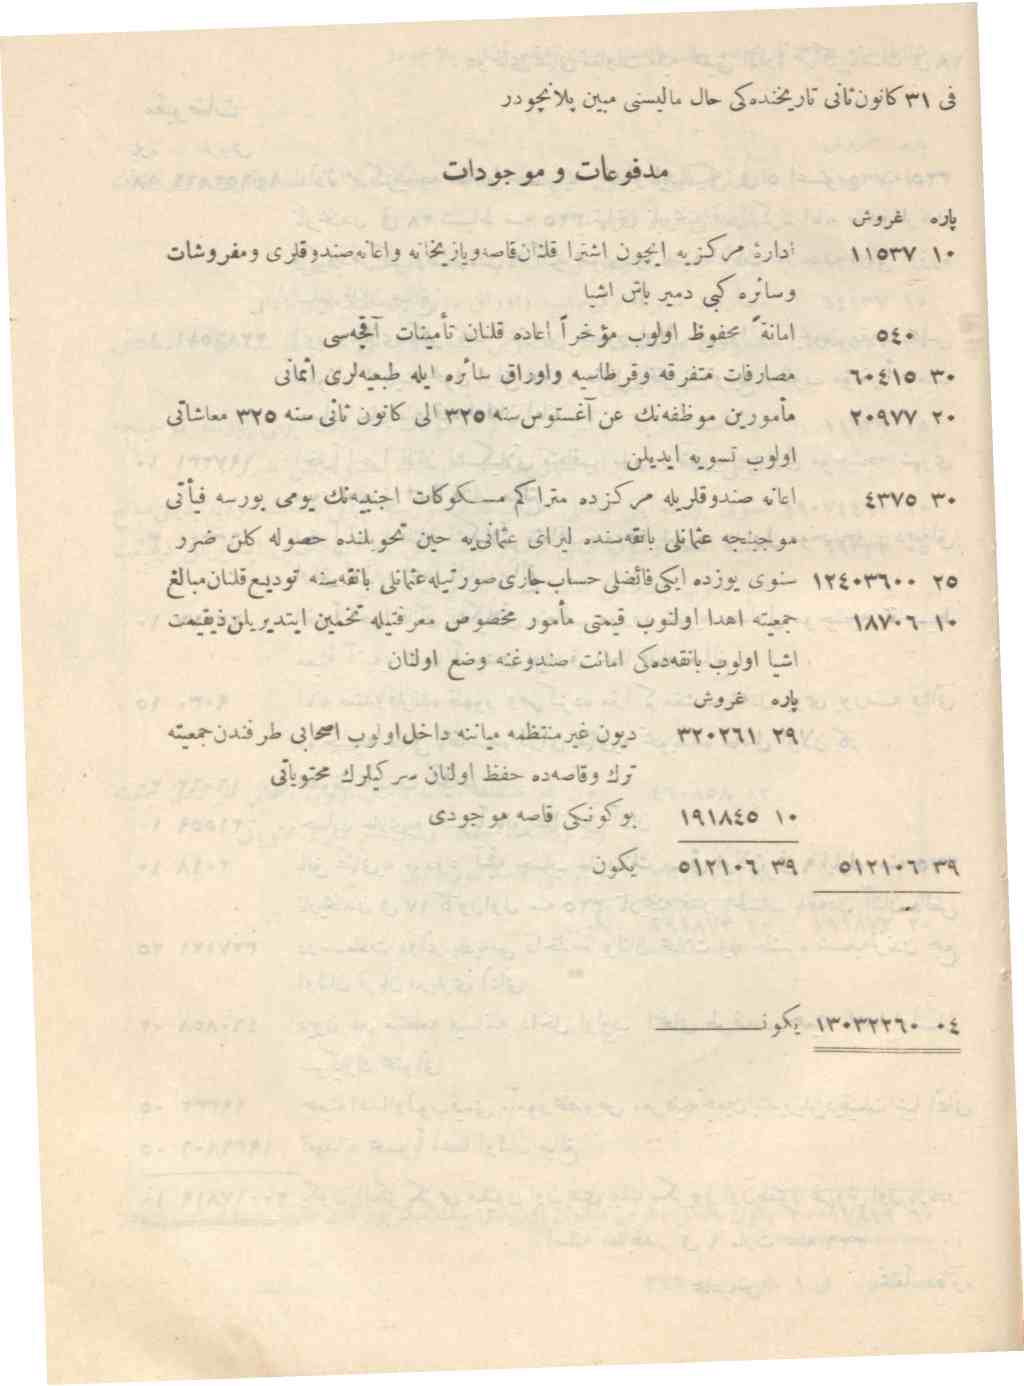 فی ٣١ كانون‌ثانی تاریخنده‌كی حال مالیسنی مبین پلانچودر
مدفوعات و موجودات
پاره غروش
١٠ ١١٥٣٧ ادارۀ مركزیه ایچون اشترا قلنان‌قاصه‌ویازیخانه واعانه‌صندوقلری ومفروشات
وسائره كبی دمیر باش اشیا
٥٤٠ امانةً محفوظ اولوب مؤخراً اعاده قلنان تأمینات آقچه‌سی
٣٠ ٦٠٤١٥ مصارفات متفرقه وقرطاسیه واوراق سائره ایله طبعیه‌لری اثمانی
٢٠ ٢٠٩٧٧ مأمورین موظفه‌نك عن آغستوس‌سنه ٣٢٥ الی كانون ثانی سنه ٣٢٥ معاشاتی
اولوب تسویه ایدیلن
٣٠ ٤٣٧٥ اعانه صندوقلریله مركزده متراكم مسكوكات اجنبیه‌نك یومی بورسه فیأتی
موجبنجه عثمانلی بانقه‌سنده لیرای عثمانی‌یه حین تحویلنده حصوله كلن ضرر
٢٥ ١٢٤٠٣٦٠٠ سنوی یوزده ایكی‌فائضلی حساب‌جاری‌صورتیله‌عثمانلی بانقه‌سنه تودیع‌قلنان‌مبالغ
١٠ ١٨٧٠٦ جمعیته اهدا اولنوب قیمتی مأمور مخصوص معرفتیله تخمین ایتدیریلن‌ذیقیمت
اشیا اولوب بانقه‌ده‌كی امانت صندوغنه وضع اولنان
پاره غروش
٢٩ ٣٢٠٢٦١ دیون غیرمنتظمه میاننه داخل‌اولوب اصحابی طرفندن‌جمعیته
ترك وقاصه‌ده حفظ اولنان سركیلرك محتویاتی
١٠ ١٩١٨٤٥ بوكونكی قاصه موجودی
٣٩ ٥١٢١٠٦ ٣٩ ٥١٢١٠٦ یكون
٠٤ ١٣٠٣٢٢٦٠ یكون